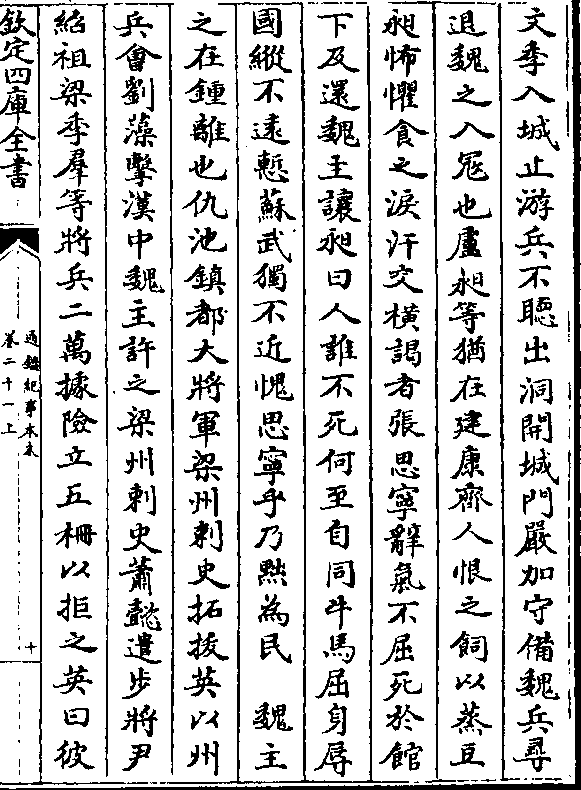 文季入城止游兵不聽出洞開城門嚴加守備魏兵尋
退魏之入冦也盧昶等猶在建康齊人恨之飼以蒸豆
昶怖懼食之淚汗交橫謁者張思寧辭氣不屈死於館
下及還魏主讓昶曰人誰不死何至自同牛馬屈身辱
國縱不遠慙蘇武獨不近愧思寧乎乃黜為民　魏主
之在鍾離也仇池鎮都大將軍梁州刺史拓拔英以州
兵會劉藻擊漢中魏主許之梁州刺史蕭懿遣步將尹
紹祖梁季羣等將兵二萬據險立五柵以拒之英曰彼
欽定四庫全書
通鑑紀事本末
卷二十一上
十